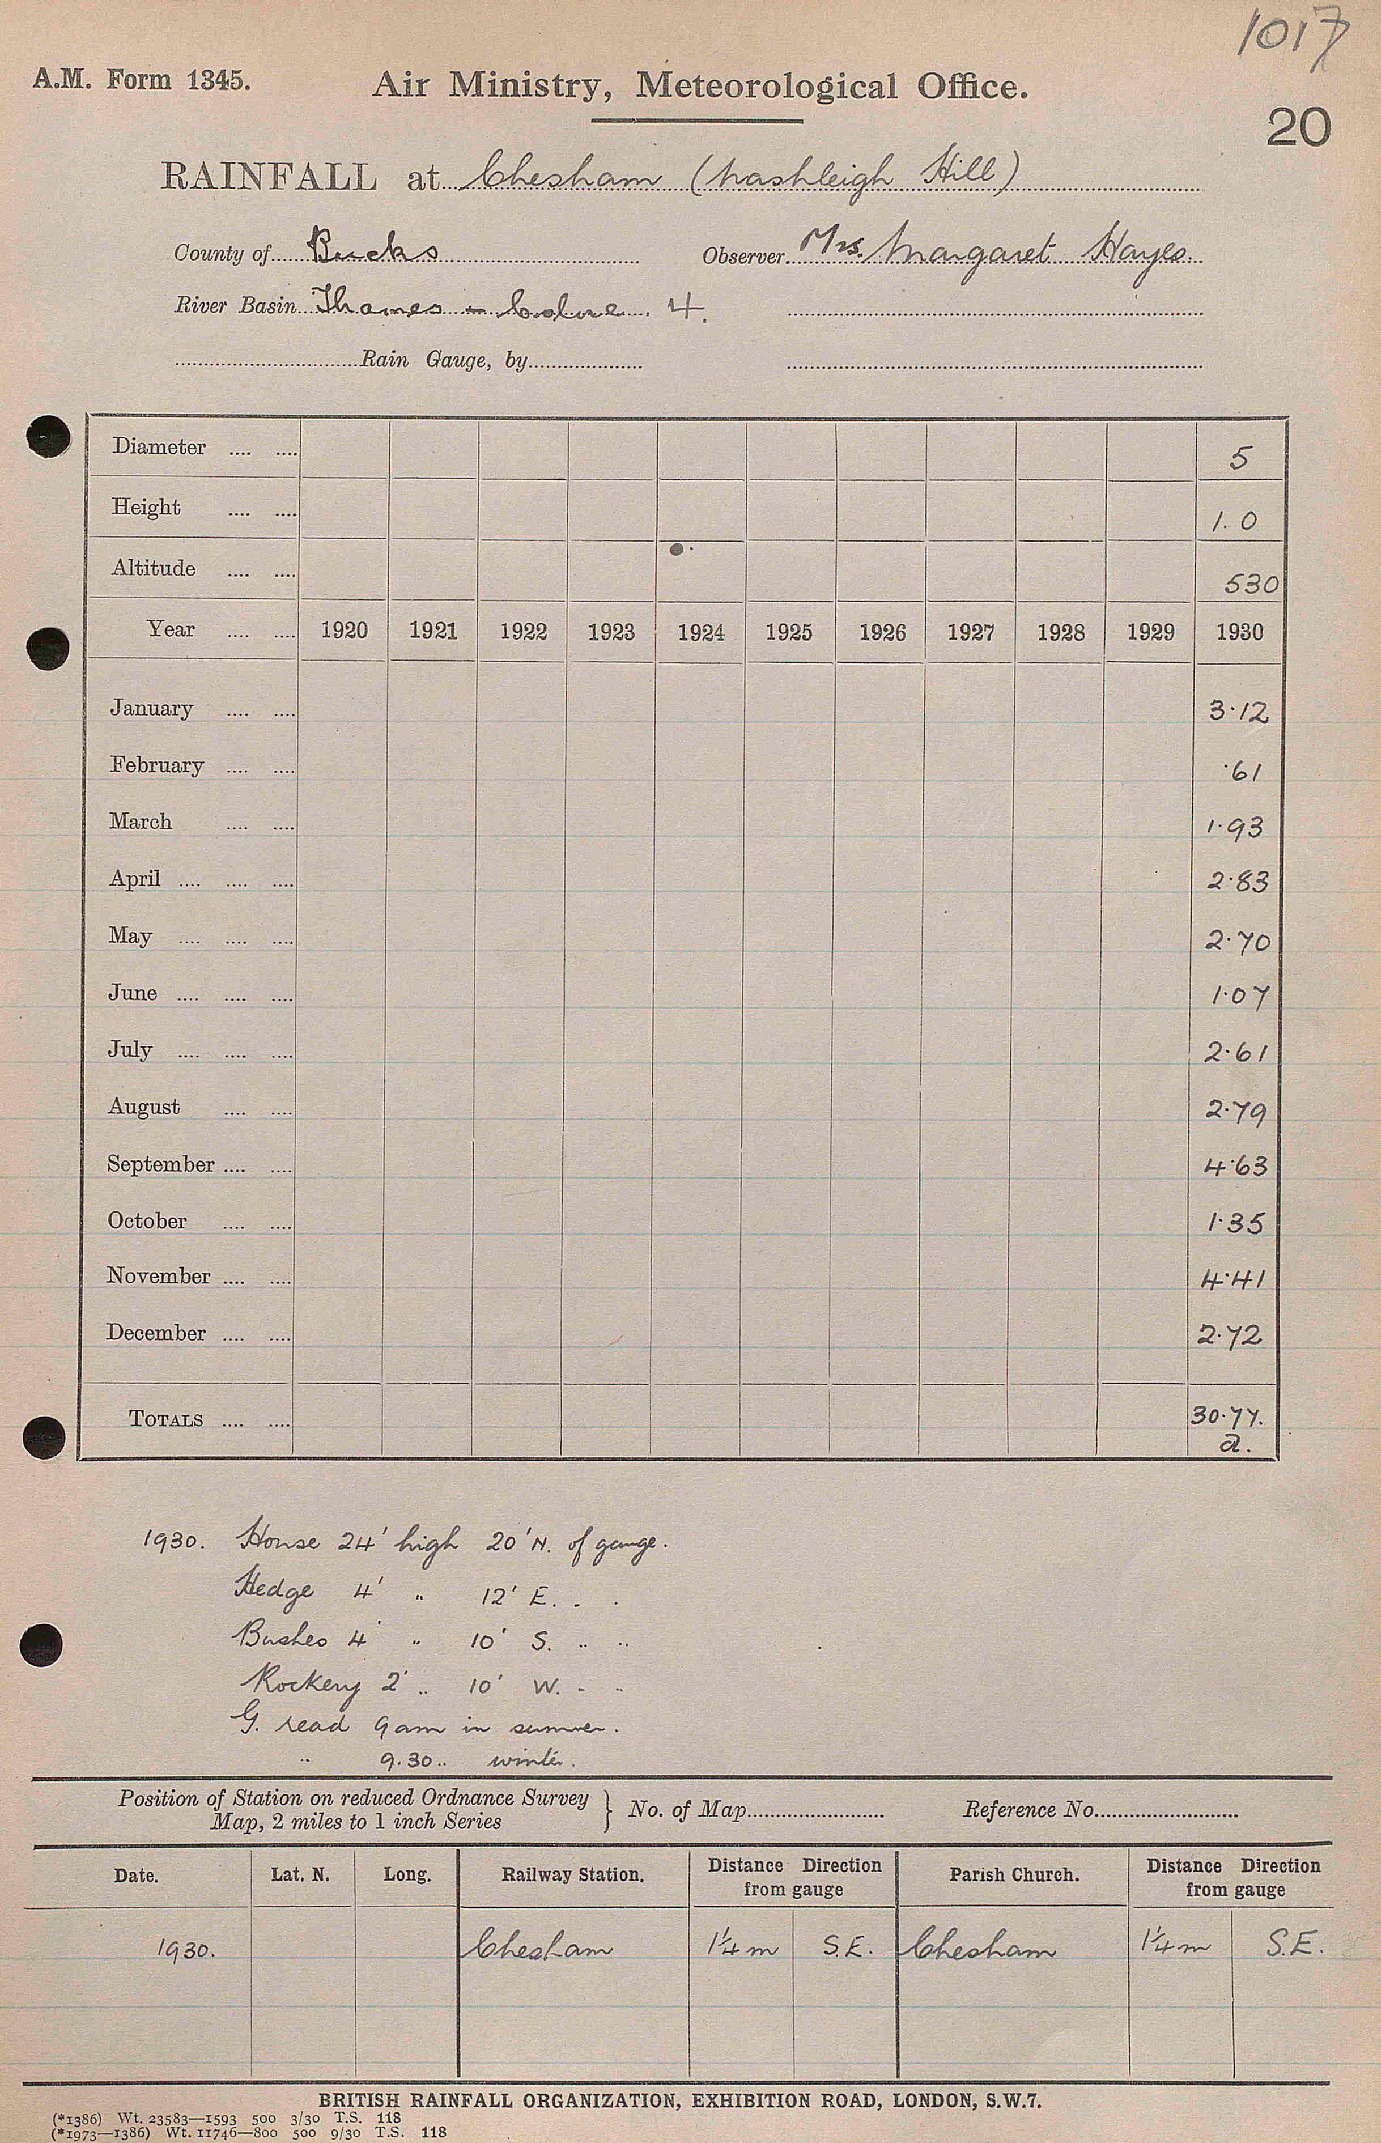 1017
A.M. Form 1345. Air Ministry, Meteorological Office.
20
RAINFALL at Chesham (Nashleigh Hill)
County of Bucks Observer Mrs. Margaret Hayes.
River Basin Thames - Colne. 4.
Rain Gauge, by
Diameter .... .... 5
Height .... .... 1.0
Altitude .... .... 530
Year .... .... 1920 1921 1922 1923 1924 1925 1926 1927 1928 1929 1930
January .... .... 3·12
February .... .... ·61
March .... .... 1·93
April .... .... .... 2·83
May .... .... .... 2·70
June .... .... .... 1·07
July .... .... .... 2·61
August .... .... 2·79
September .... .... 4·63
October .... .... 1·35
November .... .... 4·41
December .... .... 2·72
TOTALS .... .... 30·77.
a.
1930. House 24' high 20' N. of gauge.
Hedge 4' " 12' E. " "
Bushes 4' " 10' S. " "
Rockery 2' " 10' W. " "
G. read 9am in summer.
" 9.30 " winter.
Position of Station on reduced Ordnance Survey
Map, 2 miles to 1 inch Series } No. of Map Reference No.
Date. Lat. N. Long. Railway Station. Distance Direction from gauge Parish Church. Distance Direction from gauge
1930. Chesham 1¼ m S.E. Chesham 1¼ m S.E.
BRITISH RAINFALL ORGANIZATION, EXHIBITION ROAD, LONDON, S.W.7.
(*1386) Wt. 23583—1593 500 3/30 T.S. 118
(*1973—1386) Wt. 11746—800 500 9/30 T.S. 118